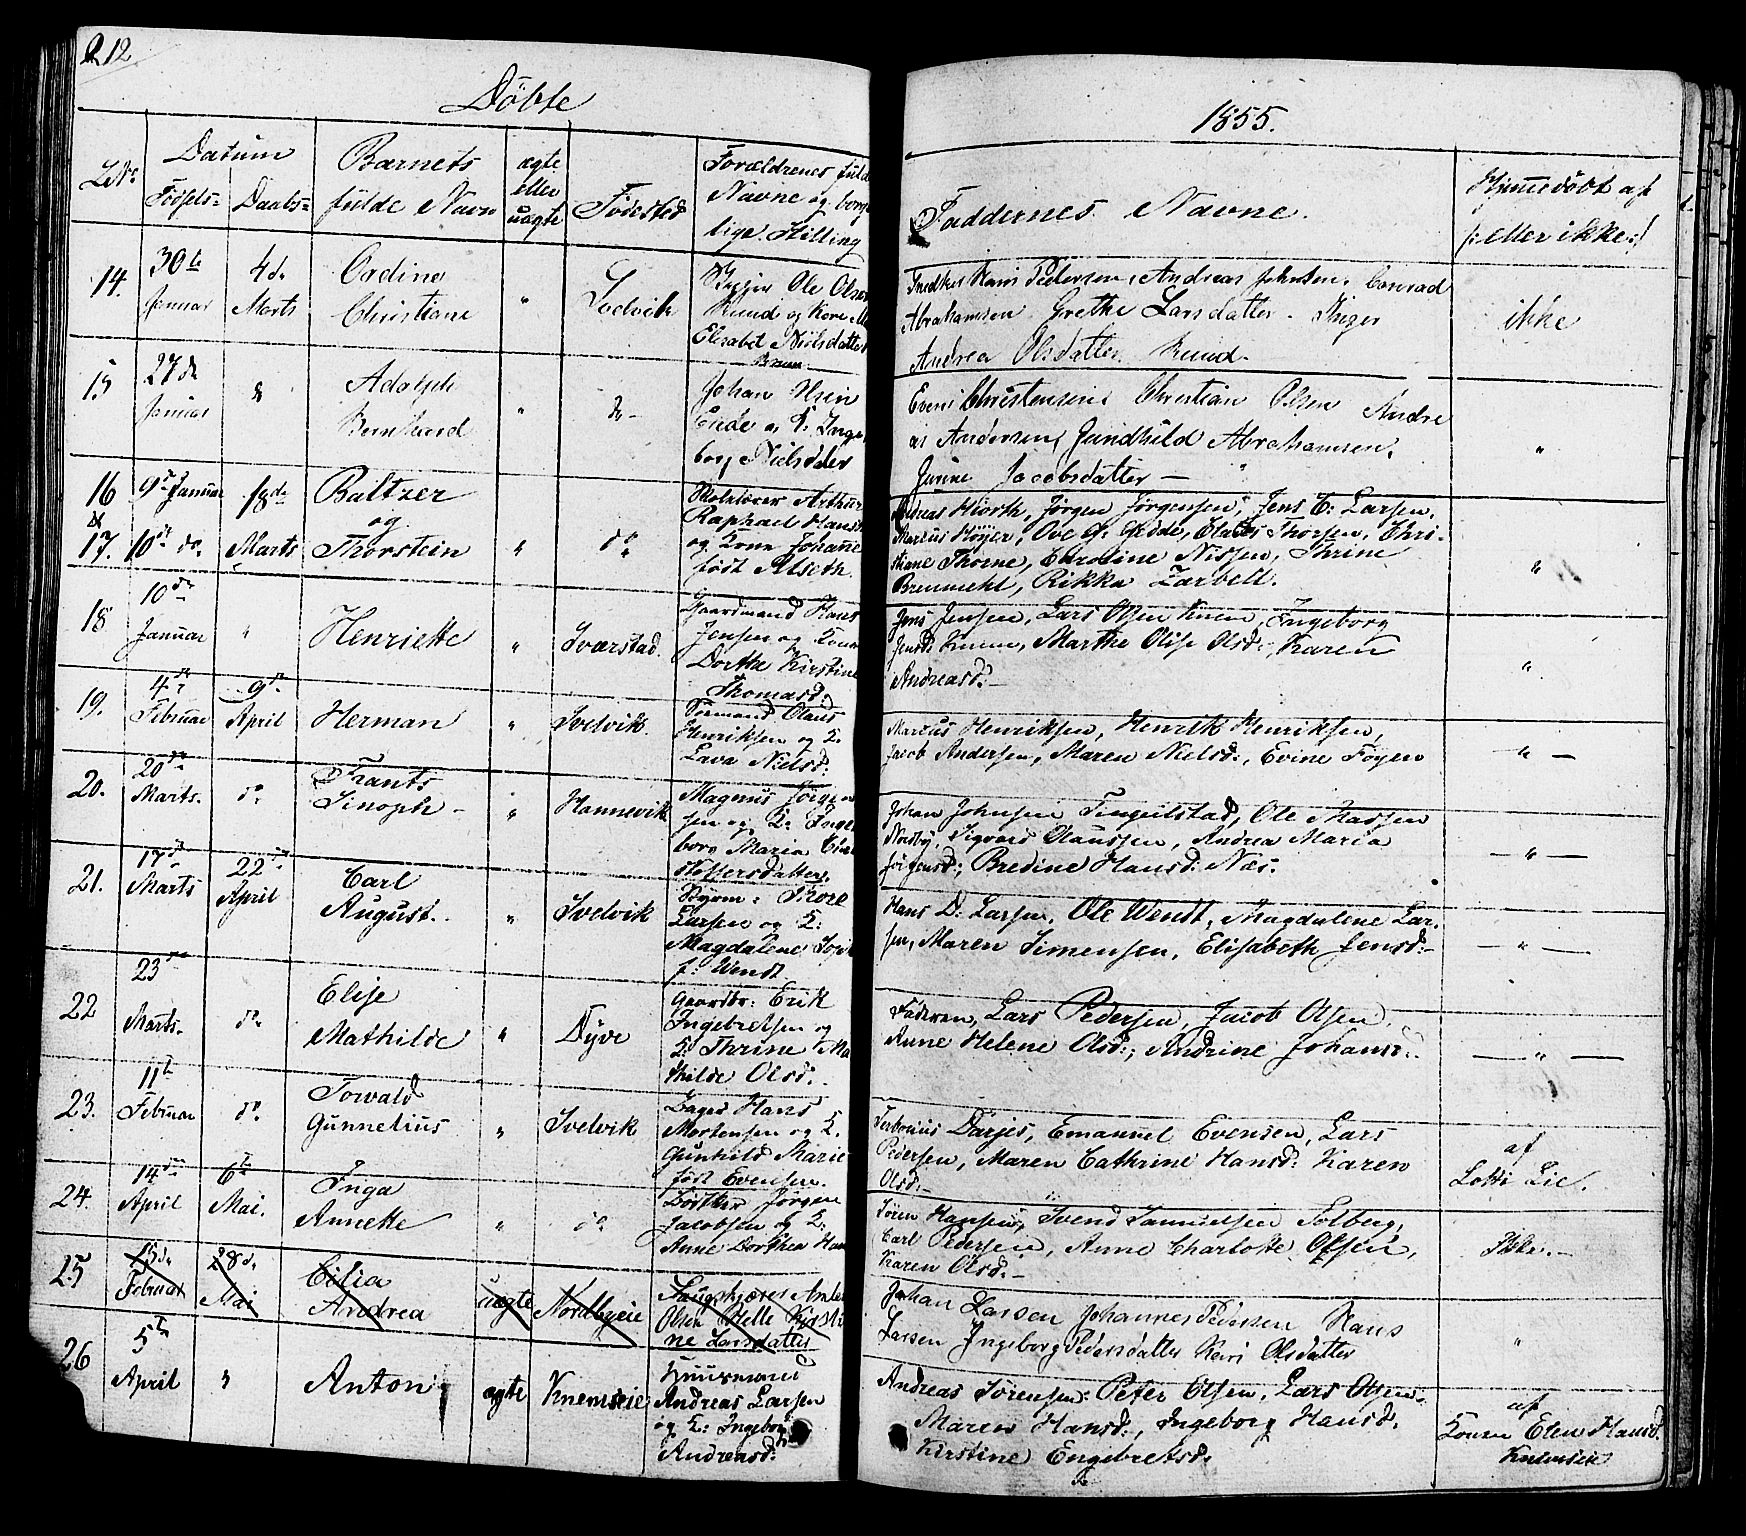 212
Döbte
1855.
LNo
Datum
Fødsels=
Daabs=
Barnets
fulde Navn
ægte
eller
uægte
Födested
Forældrenes fulde
Navne og borger
lige Stilling
Faddernes Navne.
Hjemmedöbt af
/: eller ikke :/
14.
30te
Januar
4de
Marts
Christiane
"
Svelvik
Ole Olsen
Elisabet Nielsdatter
Hans Pedersen, Andreas Johnsen, Conrad
Abrahamsen Grethe Larsdatter. Inger
Andrea Olsdatter
ikke
15
27de
Januar
"
Adolph
Bernhard
"
do
Johan
Nielsdatter
Even Christensen, Christian Olsen Andre
as Andersen, Gunhild Abrahamsen.
Jacobsdatter —
"
16
&
17.
9de Januar
10de do.
18de
Marts
Baltzer
og
Thorstein
"
do
Skolelærer Arthur
Raphael Hansen
og Kone Johanne
født Alseth.
Andreas Hiorth, Jørgen Jørgensen, Jens E. Larsen,
Marcus Höyer, Ove Gedde, Claus Thorsen, Chri-
stiane Thorne, Caroline Nissen, Thrine
Rikka Zarbell.
"
18
10de
Januar
"
Henriette
"
Sværstad.
Gaardmand Hans
Jensen og Kone
Dorthe Kirstine
Thomasd:
Jens Jensen, Lars Olsen Knem, Ingeborg
Jensd: Knem, Marthe Olise Olsd:, Karen
Andreasd: —
"
19.
4de
Februar
9de
April
Herman
"
Svelvik.
Sömand Olaus
Henriksen og K:
Lava Nielsd:
Marcus Henriksen, Henrik Henriksen,
Jacob Andersen, Maren Nielsd:, Evine Föyen
— " —
20.
20de
Marts.
do
Frants
Sinoph —
"
Hannevik
Magnus Jörgen
sen og K: Inge
borg Maria Chri
stoffersdatter.
Johan Johnsen Tingulstad, Ole Madsen
Nordby, Sigvard Olaussen, Andrea Maria
Jörgensd:, Bredine Hansd: Næs.
— " —
21.
17de
Marts
22de
April
Carl
August.
"
Svelvik
Styrm: Thore
Larsen og K:
Magdalene
f: Wendt
Hans D: Larsen, Ole Wendt, Magdalene Lar-
sen, Maren Simensen, Elisabeth Jensd: —
— " —
22
23de
Marts.
do
Elise
Mathilde
"
Dyve
Gaardbr: Erik
Ingebretsen og
K: Thrine Ma
thilde Olsd:
Faderen, Lars Pedersen, Jacob Olsen,
Anne Helene Olsd:, Andrine Johansd:
— " —
23.
11te
Februar
do
Torvald
Gunnelius
"
Svelvik
Bager Hans
Mortensen og K.
Gunhild Marie
født Evensen.
Darjes, Emanuel Evensen, Lars
Pedersen, Maren Cathrine Hansd: Karen
Olsd: —
af
Lotti Lie.
24.
14de
April
6te
Mai.
Inga
Annette
"
do
Bödker Jörgen
Jacobsen og K:
Anne Dorthea Han
Sören Hansen, Svend Samuelsen Solberg,
Carl Pedersen, Anne Charlotte Olsen,
Karen Olsd: —
Ikke. —
25
15de
Februar
28de
Mai
Cilia
Andrea
uægte
Nordbyeie
Olsen Helle Kirsti
ne Larsdatter
Johan Larsen Johannes Pedersen Hans
Larsen Ingeborg Pedersdatter Kari Olsdatter
"
26
5te
April
"
Anton
ægte
Knemseie
Huusmand
Andreas Larsen
og K: Ingeborg
Andreasd:
Andreas Sörensen: Peter Olsen, Lars Olsen
Maren Hansd:, Ingeborg Hansd.
Kirstine Engebretsd.
af
Konen Elen Hansd.